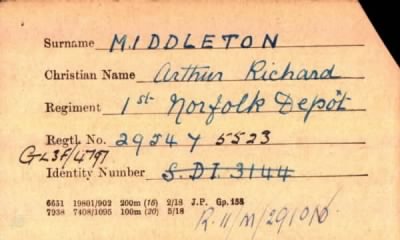 Surname MIDDLETON
Christian Name Arthur Richard
Regiment 1st Norfolk Depôt
Regtl. No. 29247 5523
GL3F/4797
Identity Number S.DI.3144
6651 19801/902 200m (16) 2/18 J.P. Gp. 158
7938 7408/1095 100m (20) 5/18
R.11/M/291010